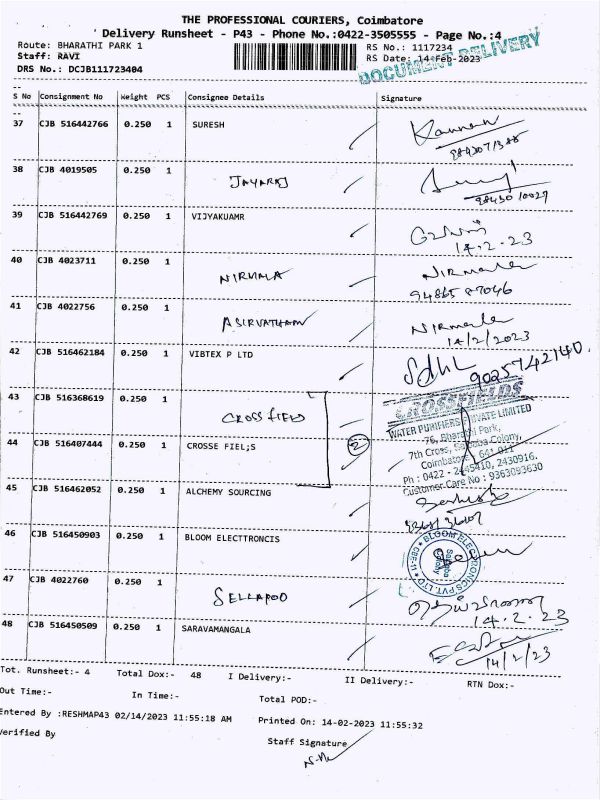 THE PROFESSIONAL COURIERS, Coimbatore
Delivery Runsheet - P43 - Phone No.:0422-3505555 - Page No.:4
Route: BHARATHI PARK 1 RS No.: 1117234
Staff: RAVI RS Date: 14-Feb-2023
DRS No.: DCJB111723404 DOCUMENT DELIVERY
S No Consignment No Weight PCS Consignee Details Signature
37 CJB 516442766 0.250 1 SURESH
38 CJB 4019505 0.250 1 JAYARAJ
98430 10027
39 CJB 516442769 0.250 1 VIJYAKUAMR
14-2-23
40 CJB 4023711 0.250 1 NIRMALA Nirmala
94865 87046
41 CJB 4022756 0.250 1 ASIRVATHAM Nirmala
14/2/2023
42 CJB 516462184 0.250 1 VIBTEX P LTD
9025742140.
43 CJB 516368619 0.250 1 CROSSFIELD
CROSSFIELDS
WATER PURIFIERS PRIVATE LIMITED
76, Bharathi Park,
44 CJB 516407444 0.250 1 CROSSE FIEL;S 2
7th Cross, Colony,
Coimbatore 641 011
Ph : 0422 - 2445410, 2430916.
Customer Care No : 9363093630
45 CJB 516462052 0.250 1 ALCHEMY SOURCING
46 CJB 516450903 0.250 1 BLOOM ELECTTRONCIS
BLOOM ELECTRONICS PVT. LTD CBE-11
47 CJB 4022760 0.250 1 SELLAPOO
14-2-23
48 CJB 516450509 0.250 1 SARAVAMANGALA
14/2/23
Tot. Runsheet:- 4 Total Dox:- 48 I Delivery:- II Delivery:- RTN Dox:-
Out Time:- In Time:- Total POD:-
Entered By :RESHMAP43 02/14/2023 11:55:18 AM Printed On: 14-02-2023 11:55:32
Verified By Staff Signature